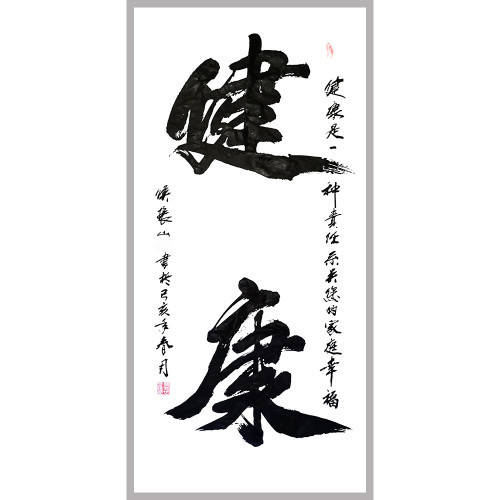 健康
健康是一种责任系关您的家庭幸福
侯张山 书於己亥年春月